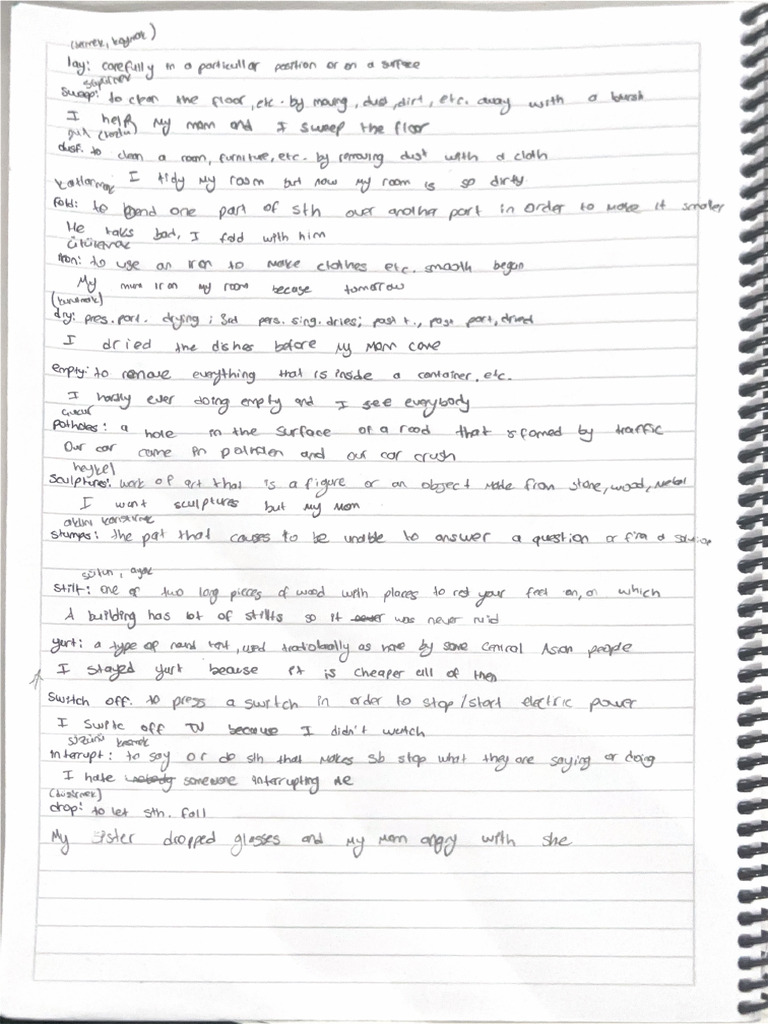 (sermek, koymak)
lay: carefully in a particullar position or on a surface
süpürmek
sweep: to clean the floor, etc. by moving, dust, dirt, etc. away with a brush
I help my mom and I sweep the floor
dust: to clean a room, furniture, etc. by removing dust with a cloth
I tidy my room but now my room is so dirty
katlamak
fold: to bend one part of sth over another part in order to make it smaller
He talks bad, I fold with him
ütülemek
iron: to use an iron to make clothes etc. smooth
My iron my room becase tomorrow
(kurutmak)
dry: pres. part. drying; 3rd pers. sing. dries; past t., past part, dried
I dried the dishes before my mom came
empty: to remove everything that is inside a container, etc.
I hardly ever doing empty and I see everybody
çukur
Potholes: a hole in the surface of a road that is formed by traffic
Our car came in and our car crush
heykel
Sculptures: work of art that is a figure or an object made from stone, wood, metal
I want sculptures but my mom
aklını karıştırmak
stumps: the that causes to be unable to answer a question or find a solution
sütun, ayak
stilt: one of two long pieces of wood with places to rest your feet on, on which
A building has lot of stilts so it was never
yurt: a type of tent, used as home by some Central Asian people
I stayed yurt because it is cheaper all of them
Switch off: to press a switch in order to stop/start electric power
I switc off TV because I didn't watch
sözünü kesmek
interrupt: to say or do sth that makes sb stop what they are saying or doing
I hate someone interrupting me
(düşürmek)
drop: to let sth. fall
My sister dropped glasses and my mom angry with she